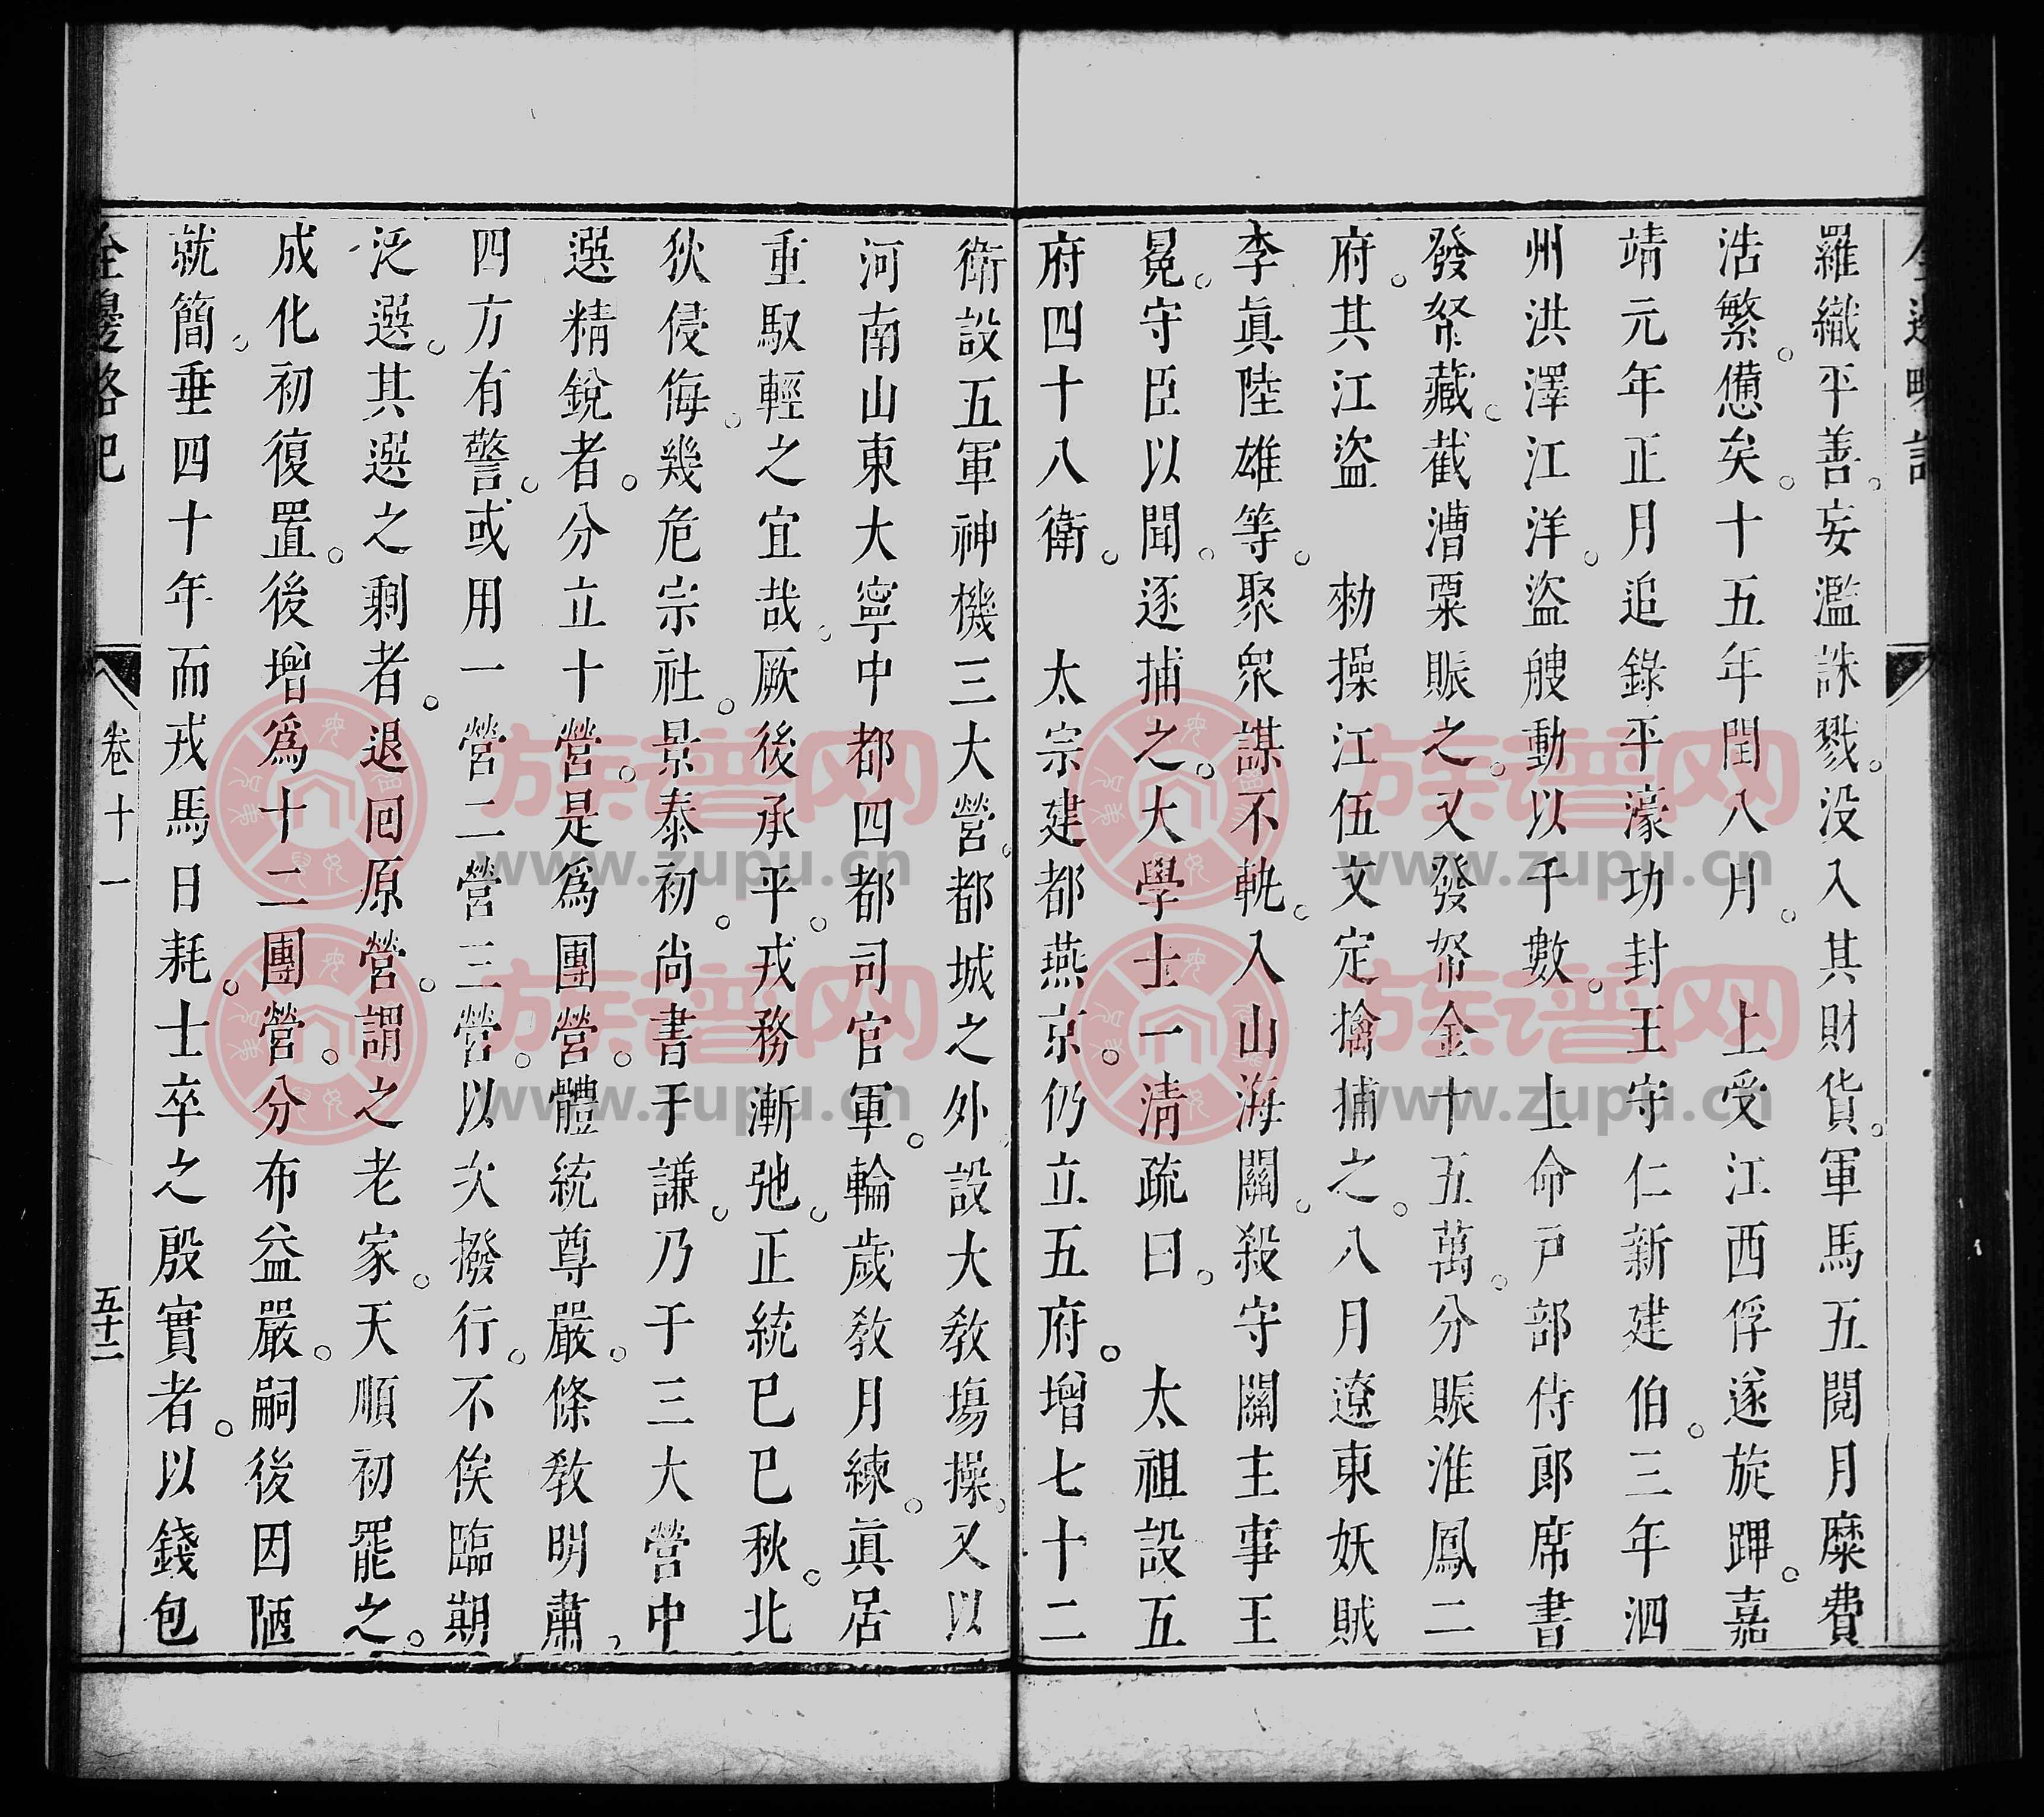 羅織平善。妄濫誅戮。没入其財貨。軍馬五閱月糜費
浩繁。憊矣。十五年閏八月。上受江西俘遂旋蹕。嘉
靖元年正月追錄平濠功封王守仁新建伯。三年泗
州洪澤江洋。盜艘動以千數。上命戶部侍郎席書
發帑藏。截漕粟賑之。又發帑金十五萬。分賑淮鳳二
府。其江盜 勑操江伍文定擒捕之。八月遼東妖賊
李眞陸雄等。聚衆謀不軌。入山海關。殺守關主事王
冕。守臣以聞。逐捕之。大學士一清疏曰。太祖設五
府四十八衛。太宗建都燕京。仍立五府。增七十二
衛設五軍神機三大營。都城之外設大敎塲操。又以
河南山東大寧中都四都司官軍。輪歲敎月練。眞居
重馭輕之宜哉。厥後承平。戎務漸弛。正統已巳秋。北
狄侵侮。幾危宗社。景泰初。尚書于謙。乃于三大營中
選精銳者。分立十營。是爲團營。體統尊嚴。條敎明肅，
四方有警。或用一營二營三營。以次撥行。不俟臨期
泛選。其選之剩者。退回原營。謂之老家。天順初罷之。
成化初復置。後增爲十二團營。分布益嚴。嗣後因陋
就簡。垂四十年而戎馬日耗。士卒之殷實者。以錢包
全邊略記
卷十一
五十二
族譜网
www.zupu.cn
族譜网
www.zupu.cn
族譜网
www.zupu.cn
族譜网
www.zupu.cn